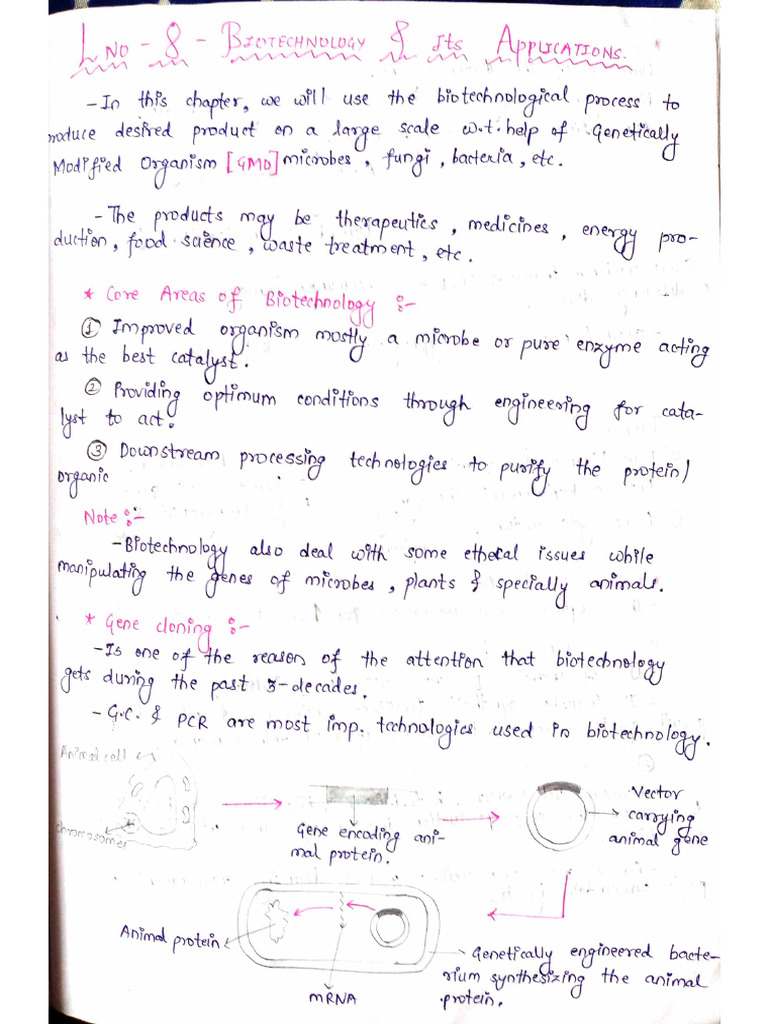 L NO - 8 - BIOTECHNOLOGY & Its APPLICATIONS.
- In this chapter, we will use the biotechnological process to
produce desired product on a large scale w.t. help of Genetically
Modified Organism [GMO] microbes, fungi, bacteria, etc.
- The products may be therapeutics, medicines, energy pro-
duction, food science, waste treatment, etc.
* Core Areas of Biotechnology :-
① Improved organism mostly a microbe or pure enzyme acting
as the best catalyst.
② Providing optimum conditions through engineering for cata-
lyst to act.
③ Downstream processing technologies to purify the protein/
organic
Note :-
- Biotechnology also deal with some ethecal issues while
manipulating the genes of microbes, plants & specially animals.
* Gene cloning :-
- Is one of the reason of the attention that biotechnology
gets during the past 3-decades.
- G.C. & PCR are most imp. technologies used in biotechnology.
Animal cell
chromosomes
Gene encoding ani-
mal protein.
Vector
carrying
animal gene
Animal protein
mRNA
Genetically engineered bacte-
rium synthesizing the animal
protein.